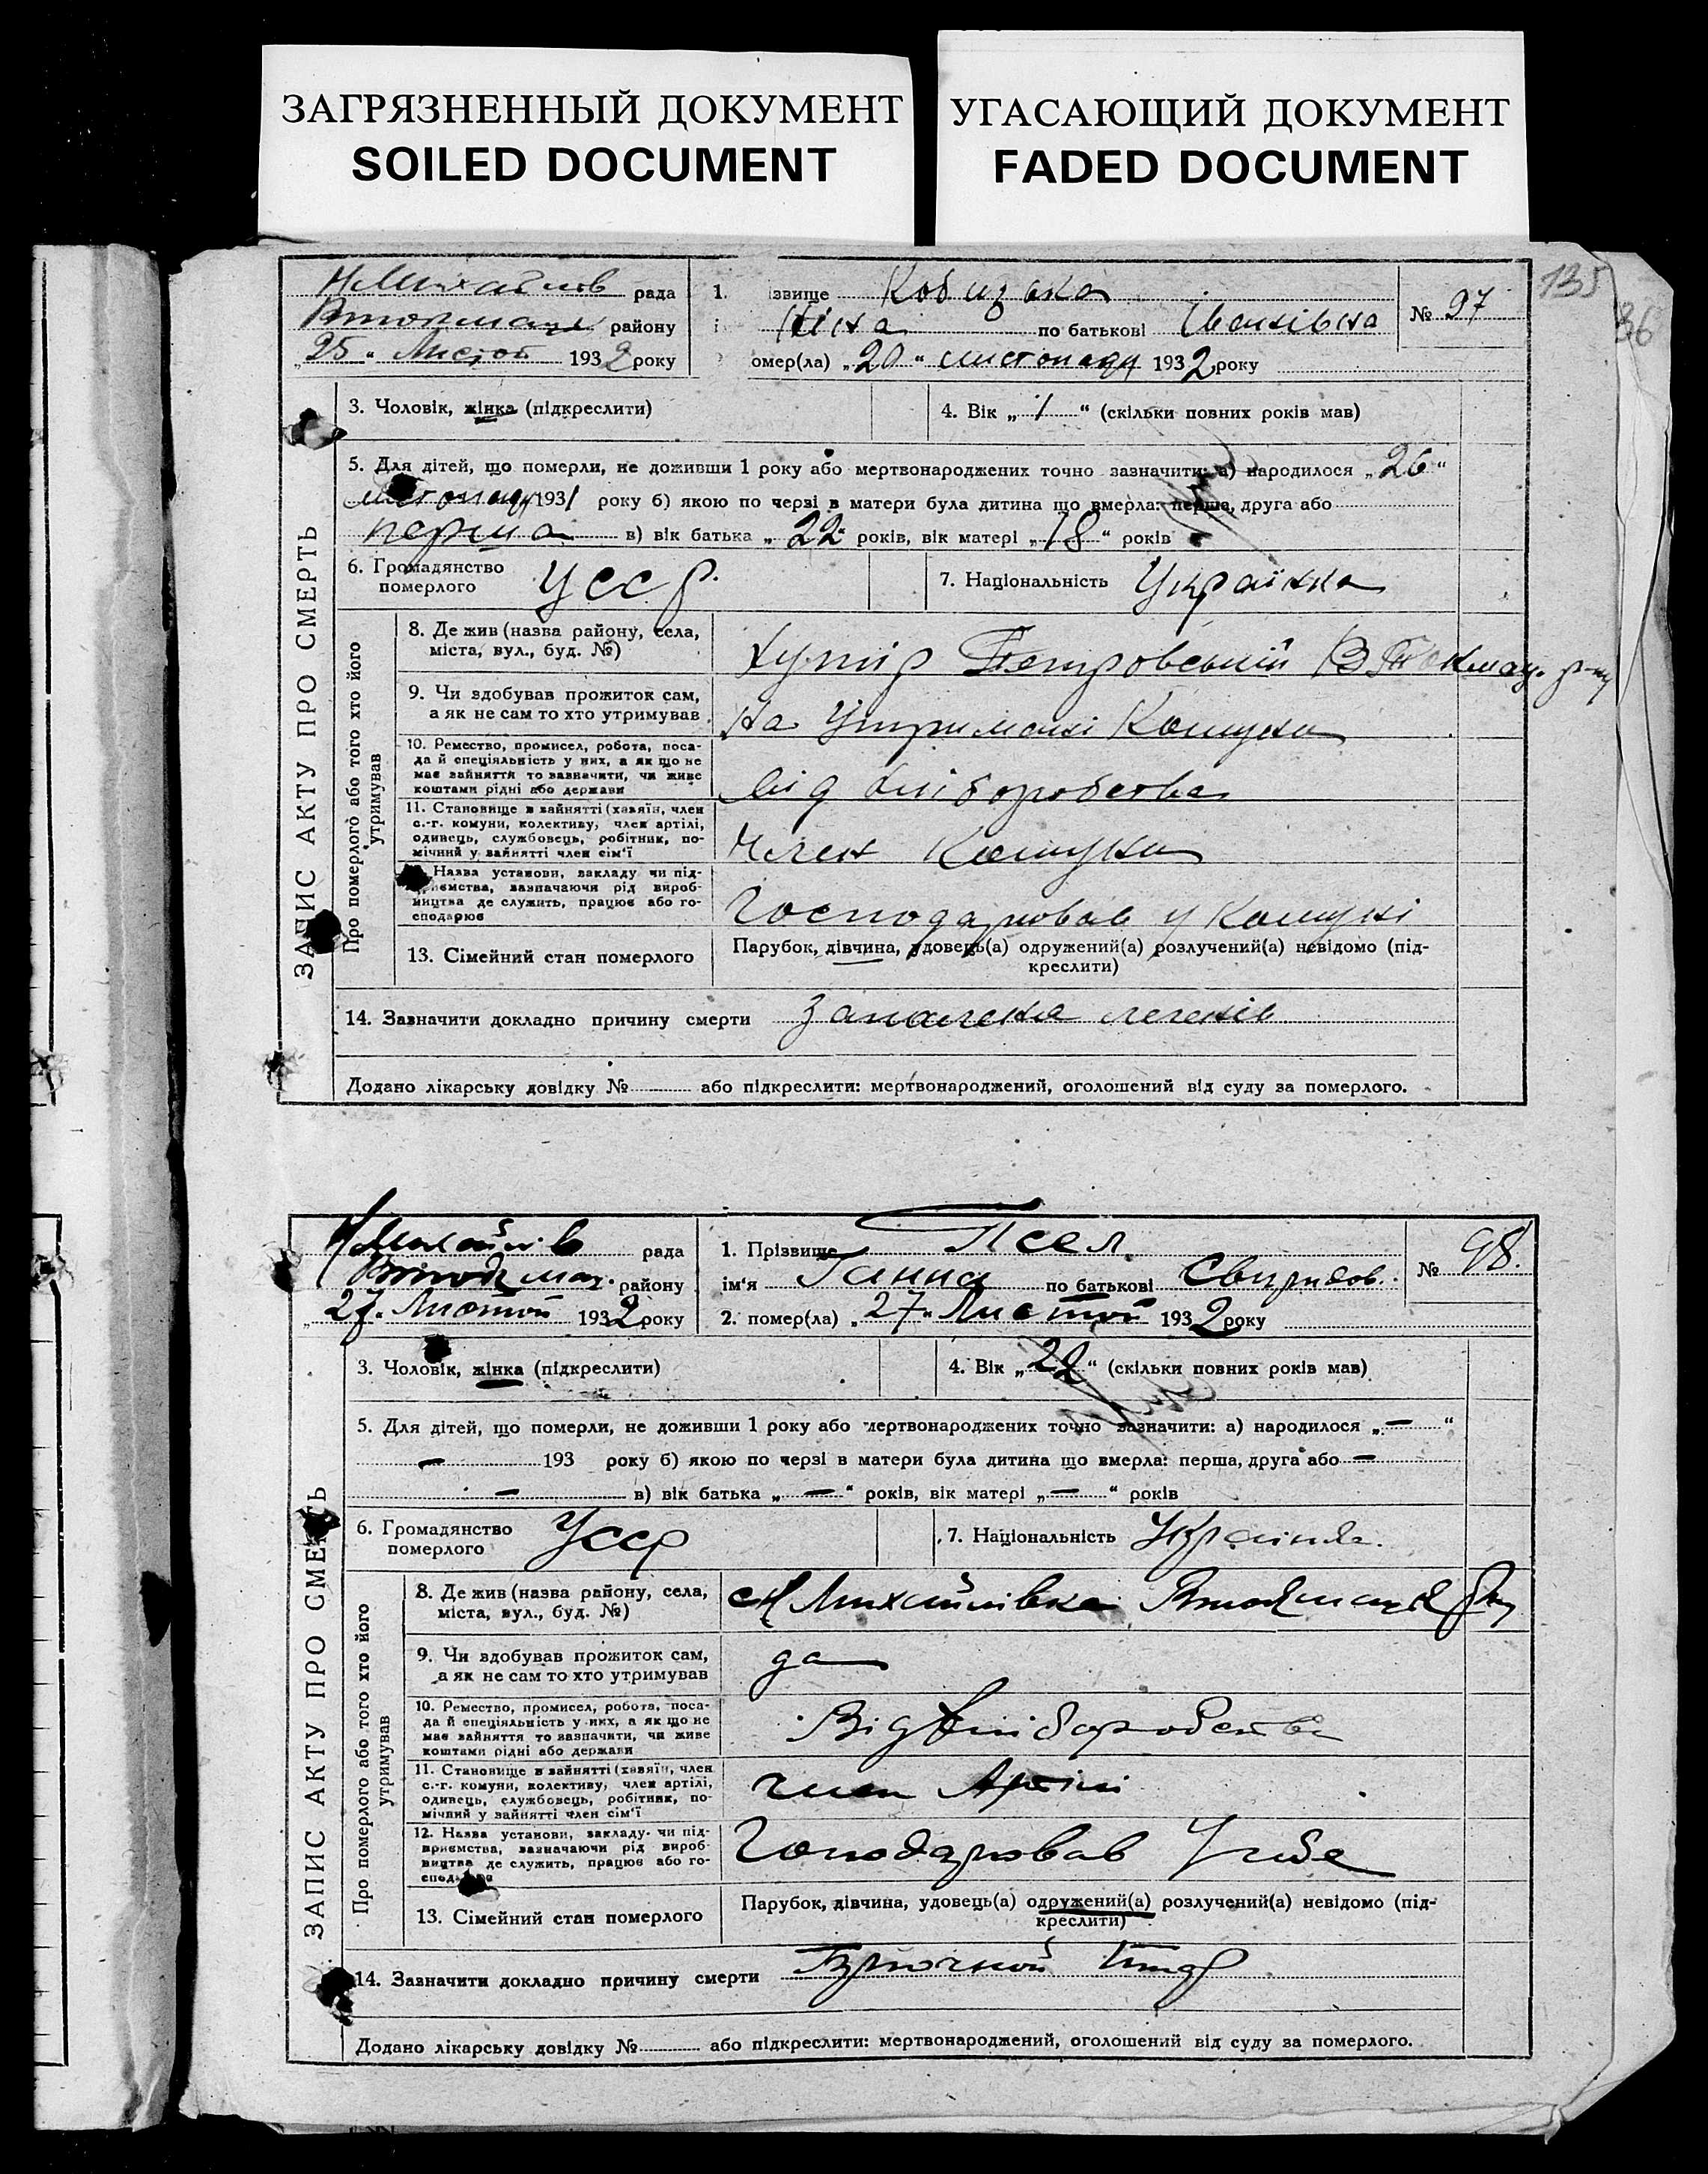 ЗАГРЯЗНЕННЫЙ ДОКУМЕНТ
SOILED DOCUMENT
УГАСАЮЩИЙ ДОКУМЕНТ
FADED DOCUMENT
135
36
рада
району
„25“ Листоп 1932 року
1. ізвище
Ніна по батькові Іванівна
омер(ла) „20“ листопаду 1932 року
№ 97
3. Чоловік, жінка (підкреслити)
4. Вік „1“ (скільки повних років мав)
5. Для дітей, що померли, не доживши 1 року або мертвонароджених точно зазначити: а) народилося „26“
листопаду 1931 року б) якою по черзі в матери була дитина що вмерла: перша, друга або
перша в) вік батька „22“ років, вік матері „18“ років
6. Громадянство
померлого
УССР.
7. Національність Українка
ЗАПИС АКТУ ПРО СМЕРТЬ
Про померлого або того хто його
утримував
8. Де жив (назва району, села,
міста, вул., буд. №)
хутір Петровський В Токмац. р-ну
9. Чи здобував прожиток сам,
а як не сам то хто утримував
на утримані Комуни
10. Ремество, промисел, робота, поса-
да й спеціяльність у них, а як що не
має зайняття то зазначити, чи живе
коштами рідні або держави
від хліборобства
11. Становище в зайнятті (хазяїн, член
с.-г. комуни, колективу, член артілі,
одивець, службовець, робітник, по-
мічний у зайнятті член сім'ї
член Комуни
Назва установи, закладу чи під-
приємства, зазначаючи рід вироб-
ництва де служить, працює або го-
сподарює
Господарював у Комуні
13. Сімейний стан померлого
Парубок, дівчина, удовець(а) одружений(а) розлучений(а) невідомо (під-
креслити)
14. Зазначити докладно причину смерти запалення легенів
Додано лікарську довідку № або підкреслити: мертвонароджений, оголошений від суду за померлого.
рада
району
„27“ Листоп 1932 року
1. Прізвище Псел.
ім'я Ганна по батькові Свиридов.
2. помер(ла) „27“ Листоп 1932 року
№ 98.
3. Чоловік, жінка (підкреслити)
4. Вік „28“ (скільки повних років мав)
5. Для дітей, що померли, не доживши 1 року або мертвонароджених точно зазначити: а) народилося „—“
— 193 року б) якою по черзі в матери була дитина що вмерла: перша, друга або —
— в) вік батька „—“ років, вік матері „—“ років
6. Громадянство
померлого
УССР
7. Національність Українка.
ЗАПИС АКТУ ПРО СМЕРТЬ
Про померлого або того хто його
утримував
8. Де жив (назва району, села,
міста, вул., буд. №)
с Н Михайлівка
9. Чи здобував прожиток сам,
а як не сам то хто утримував
да
10. Ремество, промисел, робота, поса-
да й спеціяльність у них, а як що не
має зайняття то зазначити, чи живе
коштами рідні або держави
Від хліборобства
11. Становище в зайнятті (хазяїн, член
с.-г. комуни, колективу, член артілі,
одивець, службовець, робітник, по-
мічний у зайнятті член сім'ї
член Артілі
12. Назва установи, закладу чи під-
приємства, зазначаючи рід вироб-
ництва де служить, працює або го-
сподарює
Господарював У себе
13. Сімейний стан померлого
Парубок, дівчина, удовець(а) одружений(а) розлучений(а) невідомо (під-
креслити)
14. Зазначити докладно причину смерти
Додано лікарську довідку № або підкреслити: мертвонароджений, оголошений від суду за померлого.